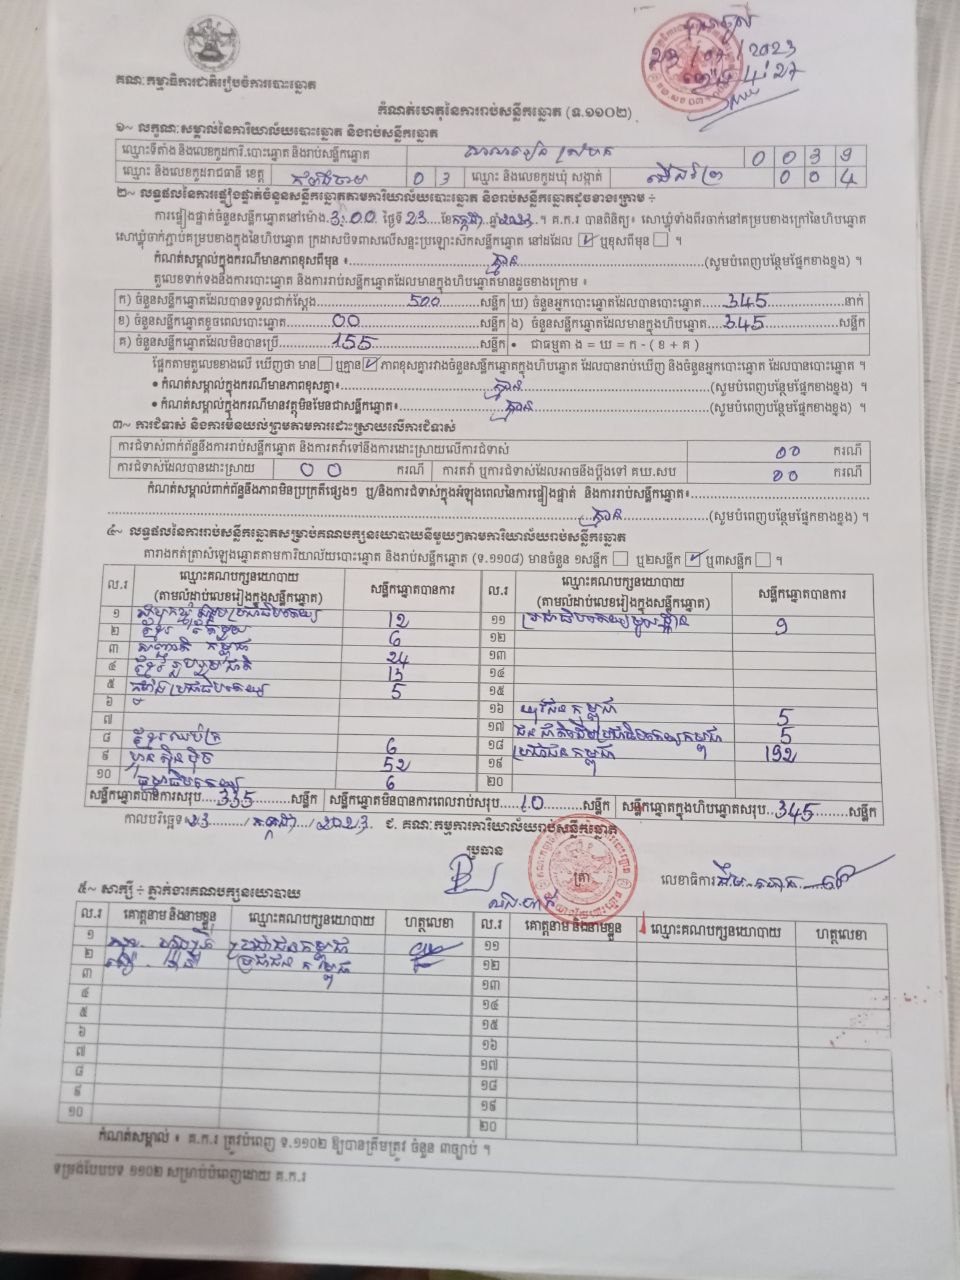 គណៈកម្មាធិការជាតិរៀបចំការបោះឆ្នោត
23 /07 /2023
4:27
កំណត់ហេតុនៃការរាប់សន្លឹកឆ្នោត (ទ.១១០២)
១~ លក្ខណៈសម្គាល់នៃការិយាល័យបោះឆ្នោត និងរាប់សន្លឹកឆ្នោត
ឈ្មោះទីតាំង និងលេខកូដការិ.បោះឆ្នោត និងរាប់សន្លឹកឆ្នោត 0 0 3 9
ឈ្មោះ និងលេខកូដរាជធានី ខេត្ត កំពង់ចាម 0 3 ឈ្មោះ និងលេខកូដឃុំ សង្កាត់ 0 0 4
២~ លទ្ធផលនៃការផ្ទៀងផ្ទាត់ចំនួនសន្លឹកឆ្នោតតាមការិយាល័យបោះឆ្នោត និងរាប់សន្លឹកឆ្នោតដូចខាងក្រោម ÷
ការផ្ទៀងផ្ទាត់ចំនួនសន្លឹកឆ្នោតនៅម៉ោង.3:00 ថ្ងៃទី 23....ខែកក្កដា ឆ្នាំ2023.។ គ.ក.រ បានពិនិត្យ៖ សោឃ្លុំទាំងពីរចាក់នៅគម្របខាងក្រៅនៃហិបឆ្នោត
សោឃ្លុំចាក់ភ្ជាប់គម្របខាងក្នុងនៃហិបឆ្នោត ក្រដាសបិទពាសលើសន្ទះប្រឡោះស៊កសន្លឹកឆ្នោត នៅដដែល ☑ ឬខុសពីមុន ☐ ។
កំណត់សម្គាល់ក្នុងករណីមានភាពខុសពីមុន ៖ គ្មាន (សូមបំពេញបន្ថែមផ្នែកខាងខ្នង) ។
តួលេខទាក់ទងនឹងការបោះឆ្នោត និងការរាប់សន្លឹកឆ្នោតដែលមានក្នុងហិបឆ្នោតមានដូចខាងក្រោម ៖
ក) ចំនួនសន្លឹកឆ្នោតដែលបានទទួលជាក់ស្តែង 500 សន្លឹក ឃ) ចំនួនអ្នកបោះឆ្នោតដែលបានបោះឆ្នោត 345 នាក់
ខ) ចំនួនសន្លឹកឆ្នោតខូចពេលបោះឆ្នោត 00 សន្លឹក ង) ចំនួនសន្លឹកឆ្នោតដែលមានក្នុងហិបឆ្នោត 345 សន្លឹក
គ) ចំនួនសន្លឹកឆ្នោតដែលមិនបានប្រើ 155 សន្លឹក • ជាធម្មតា ង = ឃ = ក - ( ខ + គ )
ផ្អែកតាមតួលេខខាងលើ ឃើញថា មាន ☐ ឬគ្មាន ☑ ភាពខុសគ្នារវាងចំនួនសន្លឹកឆ្នោតក្នុងហិបឆ្នោត ដែលបានរាប់ឃើញ និងចំនួនអ្នកបោះឆ្នោត ដែលបានបោះឆ្នោត ។
• កំណត់សម្គាល់ក្នុងករណីមានភាពខុសគ្នា៖ គ្មាន (សូមបំពេញបន្ថែមផ្នែកខាងខ្នង) ។
• កំណត់សម្គាល់ក្នុងករណីមានវត្ថុមិនមែនជាសន្លឹកឆ្នោត៖ គ្មាន (សូមបំពេញបន្ថែមផ្នែកខាងខ្នង) ។
៣~ ការជំទាស់ និងការមិនយល់ព្រមតាមការដោះស្រាយលើការជំទាស់
ការជំទាស់ពាក់ព័ន្ធនឹងការរាប់សន្លឹកឆ្នោត និងការតវ៉ាទៅនឹងការដោះស្រាយលើការជំទាស់ 00 ករណី
ការជំទាស់ដែលបានដោះស្រាយ 0 0 ករណី ការតវ៉ា ឬការជំទាស់ដែលអាចនឹងប្តឹងទៅ គឃ.សប 00 ករណី
កំណត់សម្គាល់ពាក់ព័ន្ធនឹងភាពមិនប្រក្រតីផ្សេងៗ ឬ/និងការជំទាស់ក្នុងអំឡុងពេលនៃការផ្ទៀងផ្ទាត់ និងការរាប់សន្លឹកឆ្នោត៖
គ្មាន (សូមបំពេញបន្ថែមផ្នែកខាងខ្នង) ។
៤~ លទ្ធផលនៃការរាប់សន្លឹកឆ្នោតសម្រាប់គណបក្សនយោបាយនីមួយៗតាមការិយាល័យរាប់សន្លឹកឆ្នោត
តារាងកត់ត្រាសំឡេងឆ្នោតតាមការិយាល័យបោះឆ្នោត និងរាប់សន្លឹកឆ្នោត (ទ.១១០៨) មានចំនួន ១សន្លឹក ☐ ឬ២សន្លឹក ☑ ឬ៣សន្លឹក ☐ ។
ល.រ ឈ្មោះគណបក្សនយោបាយ (តាមលំដាប់លេខរៀងក្នុងសន្លឹកឆ្នោត) សន្លឹកឆ្នោតបានការ ល.រ ឈ្មោះគណបក្សនយោបាយ (តាមលំដាប់លេខរៀងក្នុងសន្លឹកឆ្នោត) សន្លឹកឆ្នោតបានការ
១ សំបុកឃ្មុំសង្គមប្រជាធិបតេយ្យ 12 ១១ ប្រជាធិបតេយ្យមូលដ្ឋាន 9
២ ខ្មែររួបរួម 6 ១២
៣ សញ្ជាតិ កម្ពុជា 24 ១៣
៤ ខ្មែររួបរួមជាតិ 13 ១៤
៥ កម្លាំងប្រជាធិបតេយ្យ 5 ១៥
៦ ១៦ យុវជនកម្ពុជា 5
៧ ១៧ ជនជាតិដើមប្រជាធិបតេយ្យកម្ពុជា 5
៨ ខ្មែរឈប់ក្រ 6 ១៨ ប្រជាជនកម្ពុជា 192
៩ ហ៊្វុនស៊ិនប៉ិច 52 ១៩
១០ ធម្មាធិបតេយ្យ 6 ២០
សន្លឹកឆ្នោតបានការសរុប 335 សន្លឹក សន្លឹកឆ្នោតមិនបានការពេលរាប់សរុប 10 សន្លឹក សន្លឹកឆ្នោតក្នុងហិបឆ្នោតសរុប 345 សន្លឹក
កាលបរិច្ឆេទ 23 / កក្កដា / 2023 ៩. គណៈកម្មការការិយាល័យរាប់សន្លឹកឆ្នោត
ប្រធាន (ត្រា) លេខាធិការ
៥~ សាក្សី ÷ ភ្នាក់ងារគណបក្សនយោបាយ
ល.រ គោត្តនាម និងនាមខ្លួន ឈ្មោះគណបក្សនយោបាយ ហត្ថលេខា ល.រ គោត្តនាម និងនាមខ្លួន ឈ្មោះគណបក្សនយោបាយ ហត្ថលេខា
១ ប្រជាជនកម្ពុជា ១១
២ ប្រជាជនកម្ពុជា ១២
៣ ១៣
៤ ១៤
៥ ១៥
៦ ១៦
៧ ១៧
៨ ១៨
៩ ១៩
១០ ២០
កំណត់សម្គាល់ ៖ គ.ក.រ ត្រូវបំពេញ ទ.១១០២ ឱ្យបានត្រឹមត្រូវ ចំនួន ៣ច្បាប់ ។
ទម្រង់បែបបទ ១១០២ សម្រាប់បំពេញដោយ គ.ក.រ